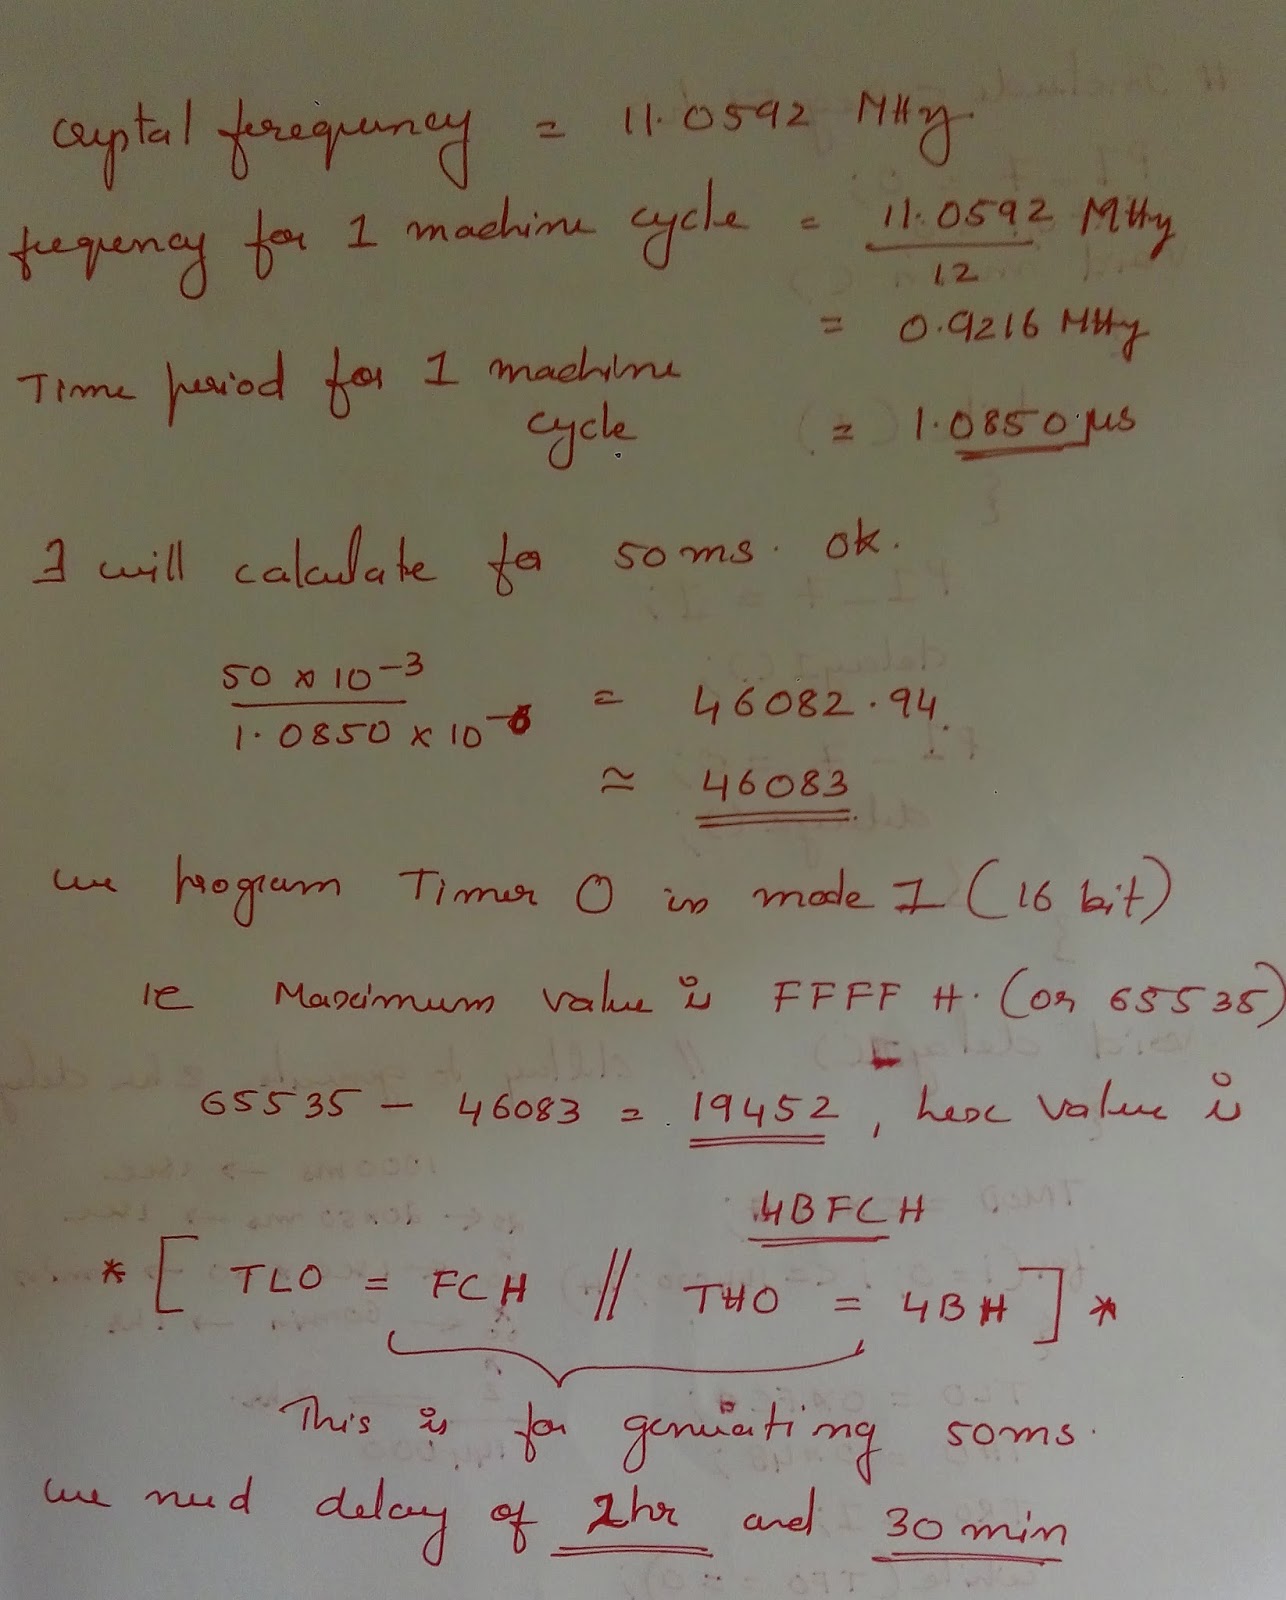 crystal frequency = 11.0592 MHz
frequency for 1 machine cycle = 11.0592 MHz
12
= 0.9216 MHz
Time period for 1 machine
cycle = 1.0850 µs
I will calculate for 50 ms. ok.
50 x 10⁻³
= 46082.94
1.0850 x 10⁻⁶
≃ 46083
we program Timer 0 in mode 1 (16 bit)
ie Maximum value is FFFF H. (or 65535)
65535 - 46083 = 19452, hex value is
4BFCH
* [ TL0 = FCH // TH0 = 4BH ] *
This is for generating 50ms.
we need delay of 2hr and 30 min